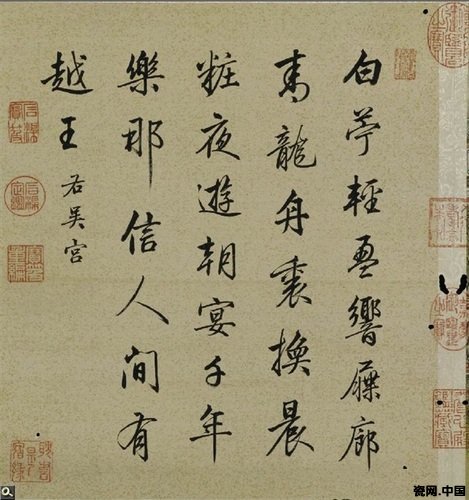 白苧輕盈響屧廊
青龍舟裏換晨
粧夜遊朝宴千年
樂那信人間有
越王
右吳宮
瓷网.中国